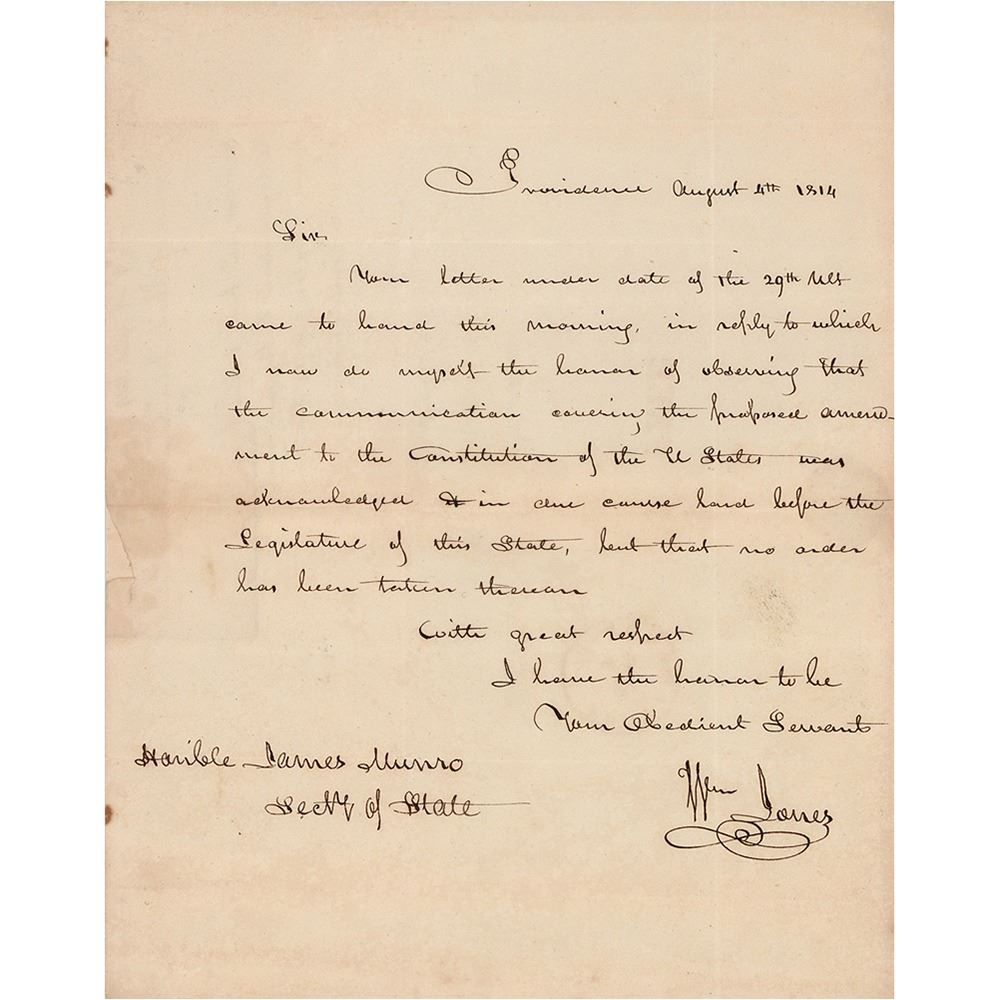 Providence August 4th 1814
Sir
Your letter under date of the 29th Ult
came to hand this morning, in reply to which
I now do myself the honor of observing that
the communication covering the proposed amend-
ment to the Constitution of the U States was
acknowledged & in due course laid before the
Legislature of this State, but that no order
has been taken thereon
With great respect
I have the honor to be
Your Obedient Servant
Honble James Munro
Secty of State
Wm Jones